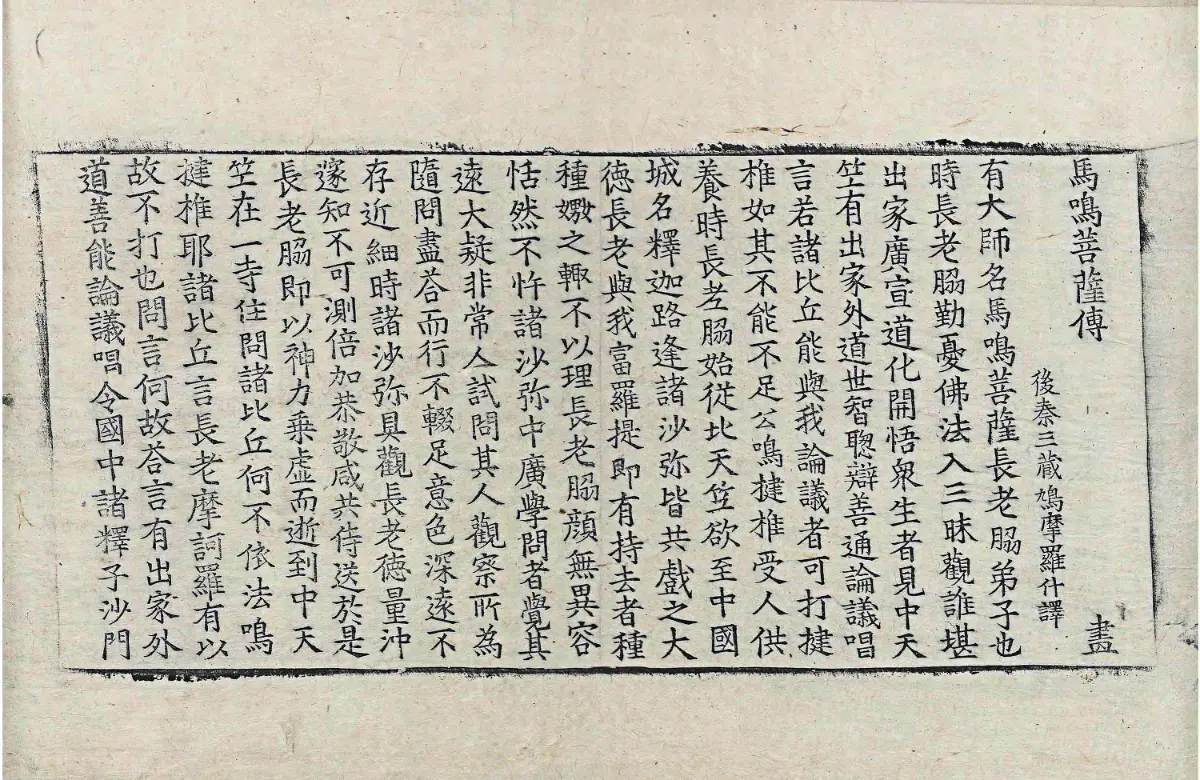 馬鳴菩薩傳 盡
後秦三藏鳩摩羅什譯
有大師名馬鳴菩薩長老脇弟子也
時長老脇勤憂佛法入三昧觀誰堪
出家廣宣道化開悟衆生者見中天
竺有出家外道世智聦辯善通論議唱
言若諸比丘能與我論議者可打揵
椎如其不能不足公鳴揵椎受人供
養時長老脇始從北天竺欲至中國
城名釋迦路逢諸沙弥皆共戲之大
徳長老與我富羅提即有持去者種
種嬲之輙不以理長老脇顔無異容
恬然不忤諸沙弥中廣學問者覺其
遠大疑非常人試問其人觀察所為
隨問盡荅而行不輟足意色深遠不
存近細時諸沙弥具觀長老徳量沖
邃知不可測倍加恭敬咸共侍送於是
長老脇即以神力乘虛而逝到中天
竺在一寺住問諸比丘何不依法鳴
揵椎耶諸比丘言長老摩訶羅有以
故不打也問言何故荅言有出家外
道善能論議唱令國中諸釋子沙門